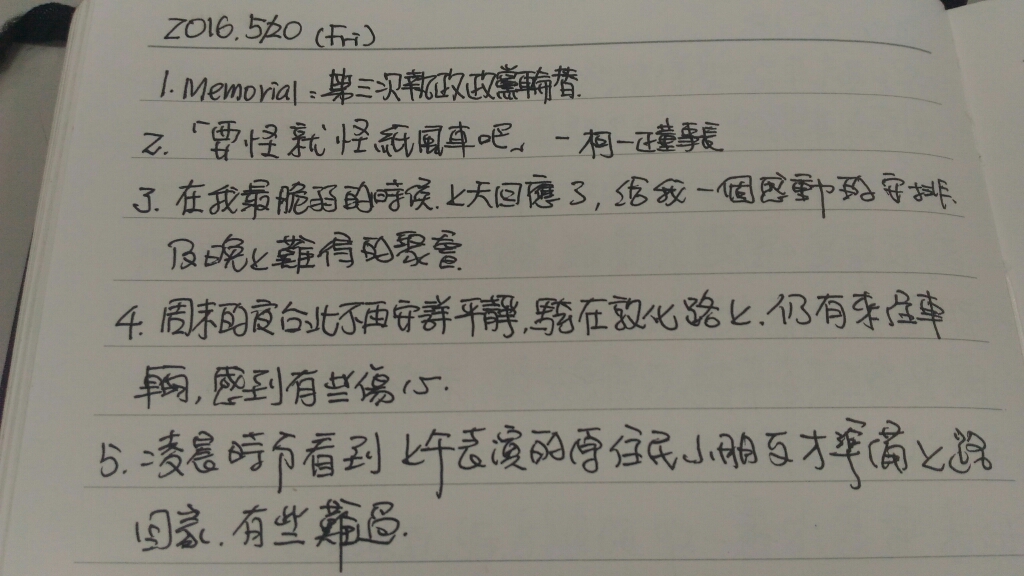 2016.5/20 (Fri)
1. Memorial:第三次執政政黨輪替.
2.「要怪就怪紙風車吧」-柯一正董事長
3. 在我最脆弱的時候.上天回應了,給我一個感動的安排.
及晚上難得的聚會.
4. 周末的夜台北不再安詳平靜,騎在敦化路上.仍有來往車
車輛,感到有些傷心.
5. 凌晨時分看到上午表演的原住民小朋友才準備上路
回家.有些難過.